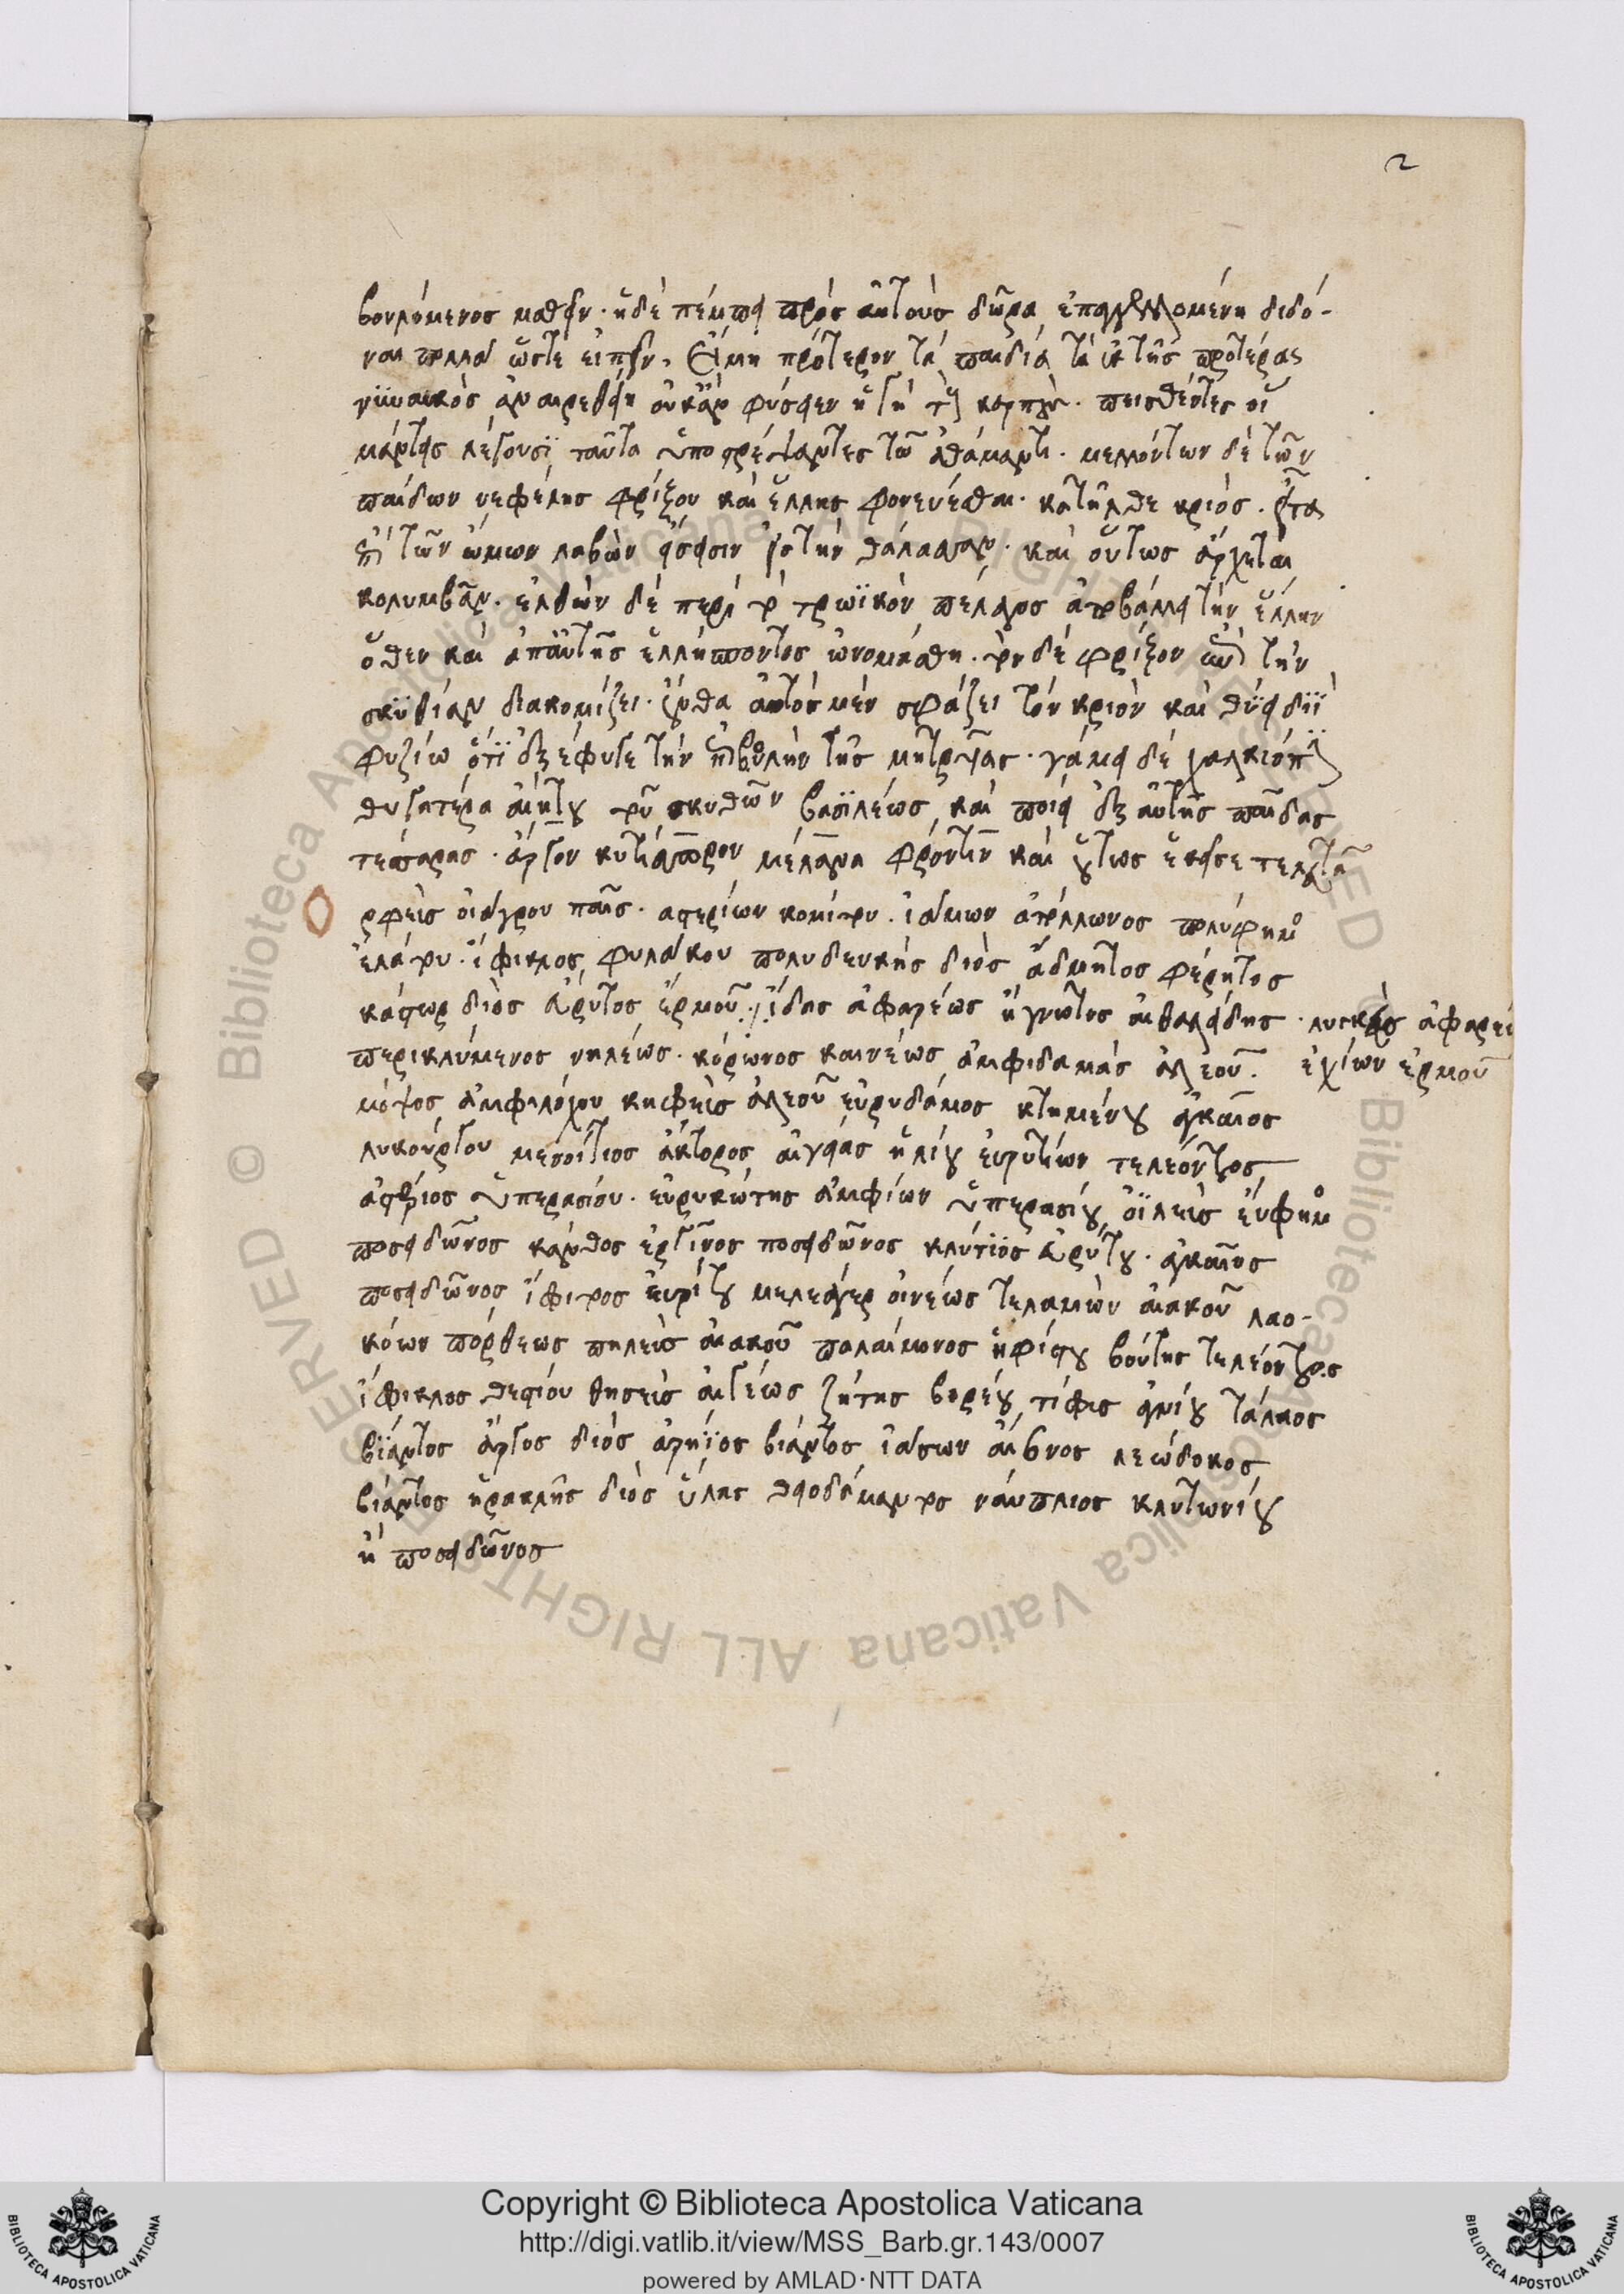 2
βουλόμενος μαθεῖν. ἡ δὲ πέμπει πρὸς αὐτοὺς δῶρα ἐπαγγελλομένη διδό-
ναι πολλὰ ὥστε εἰπεῖν, εἰ μὴ πρότερον τὰ παιδία τὰ ἐκ τῆς προτέρας
γυναικὸς ἀναιρεθείη οὐκ ἂν φύσειεν ἡ γῆ καρπὸν. πεισθέντες οἱ
μάντεις λέγουσι ταῦτα ὑποστρέψαντες τῶ ἀθάμαντι. μελλόντων δὲ τῶν
παίδων νεφέλης φρίξου καὶ ἕλλης φονεύεσθαι. κατῆλθε κριὸς.
ἐπὶ τῶν ὤμων λαβὼν εἴσεισιν εἰς τὴν θάλασσαν. καὶ οὕτως ἄρχεται
κολυμβᾶν. ἐλθὼν δὲ περὶ τὸ τρωϊκὸν πέλαγος ἀποβάλλει τὴν ἕλλην
ὅθεν καὶ ἀπ αὐτῆς ἑλλήσποντος ὠνομάσθη. τὸν δὲ φρίξον ἐπὶ τὴν
σκυθίαν διακομίζει. ἔνθα αὐτὸς μὲν σφάζει τὸν κριὸν καὶ θύει διῒ
φυξίω ὅτι ἐξέφυγε τὴν ἐπιβουλὴν τῆς μητρυιᾶς. γαμεῖ δὲ χαλκιόπην
θυγατέρα αἰήτου τοῦ σκυθῶν βασιλέως καὶ ποιεῖ ἐξ αὐτῆς παῖδας
τέσσαρας. ἄργον κυτίσσωρον μέλανα φρόντιν καὶ οὕτως ἐκεῖσε τελευτᾶ
ὀρφεὺς οἰάγρου παῖς. ἀστερίων κομήτου. ἴδμων ἀπόλλωνος πολύφημος
ἐλάτου. ἴφικλος φυλάκου πολυδεύκης διὸς ἄδμητος φέρητος
κάστωρ διὸς εὔρυτος ἑρμοῦ ἴδας ἀφαρέως αἰθαλίδης. λυγκεὺς ἀφαρέως
περικλύμενος νηλέως. κόρωνος καινέως ἀμφιδάμας ἀλεοῦ. ἐχίων ἑρμοῦ
μόψος ἀμφιλόχου κηφεὺς ἀλεοῦ εὐρυδάμος κτημένου ἀγκαῖος
λυκούργου μενοίτιος ἄκτορος αὐγείας ἡλίου ἐρυτίων τελέοντος
ἀστέριος ὑπερασίου. εὐρυβώτης ἀμφίων ὑπερασίου ὀϊλεὺς εὔφημος
ποσειδῶνος κάνθος ἐργῖνος ποσειδῶνος κλύτιος εὐρύτου. ἀγκαῖος
ποσειδῶνος ἴφιτος εὐρίτου μελέαγρος οἰνέως τελαμὼν αἰακοῦ λαο-
κόων πορθέως πηλεὺς αἰακοῦ παλαίμωνος ἡφαίστου βούτης τελέοντος
ἴφικλος θεστίου θησεὺς αἰγέως ζήτης βορέου τίφις ἁγνίου τάλαος
βίαντος ἄργος διὸς ἀρήϊος βίαντος ἰάσων αἴσονος λεώδοκος
βίαντος ἡρακλῆς διὸς ὕλας θειοδάμαντος ναύπλιος κλυτωνίου
ἢ ποσειδῶνος
Copyright © Biblioteca Apostolica Vaticana
http://digi.vatlib.it/view/MSS_Barb.gr.143/0007
powered by AMLAD·NTT DATA